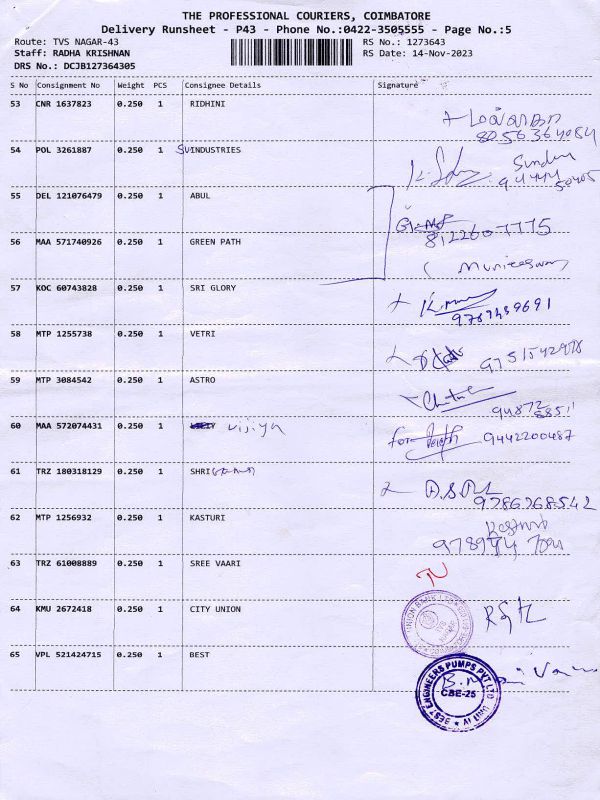 THE PROFESSIONAL COURIERS, COIMBATORE
Delivery Runsheet - P43 - Phone No.:0422-3505555 - Page No.:5
Route: TVS NAGAR-43 RS No.: 1273643
Staff: RADHA KRISHNAN RS Date: 14-Nov-2023
DRS No.: DCJB127364305
S No Consignment No Weight PCS Consignee Details Signature
53 CNR 1637823 0.250 1 RIDHINI
8056364084
54 POL 3261887 0.250 1 SVINDUSTRIES
55 DEL 121076479 0.250 1 ABUL
8122607775
56 MAA 571740926 0.250 1 GREEN PATH
57 KOC 60743828 0.250 1 SRI GLORY
58 MTP 1255738 0.250 1 VETRI
59 MTP 3084542 0.250 1 ASTRO
60 MAA 572074431 0.250 1 vijiya 9442200487
61 TRZ 180318129 0.250 1 SHRI
9786768542
62 MTP 1256932 0.250 1 KASTURI
63 TRZ 61008889 0.250 1 SREE VAARI
64 KMU 2672418 0.250 1 CITY UNION
65 VPL 521424715 0.250 1 BEST
BEST ENGINEERS PUMPS PVT LTD
CBE-25